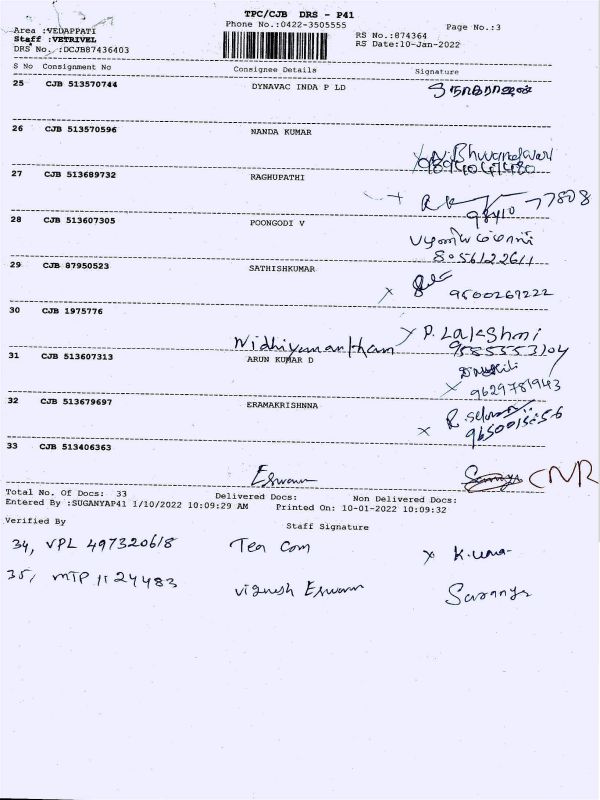 TPC/CJB DRS - P41
Phone No.:0422-3505555
Page No.:3
Area :VEDAPPATI
Staff :VETRIVEL
DRS No. :DCJB87436403
RS No.:874364
RS Date:10-Jan-2022
S No Consignment No Consignee Details Signature
25 CJB 513570744 DYNAVAC INDA P LD
26 CJB 513570596 NANDA KUMAR
27 CJB 513689732 RAGHUPATHI
77808
28 CJB 513607305 POONGODI V
8056122611
29 CJB 87950523 SATHISHKUMAR
x 9500269222
30 CJB 1975776
x P. Lakshmi
31 CJB 513607313 ARUN KUMAR D
x 9629781943
32 CJB 513679697 ERAMAKRISHNNA
x
33 CJB 513406363
Eswaran CNR
Total No. Of Docs: 33 Delivered Docs: Non Delivered Docs:
Entered By :SUGANYAP41 1/10/2022 10:09:29 AM Printed On: 10-01-2022 10:09:32
Verified By Staff Signature
34, VPL 497320618 Tea Com x K.uma
35, MTP 1124483 Vignesh Eswaran Saranya